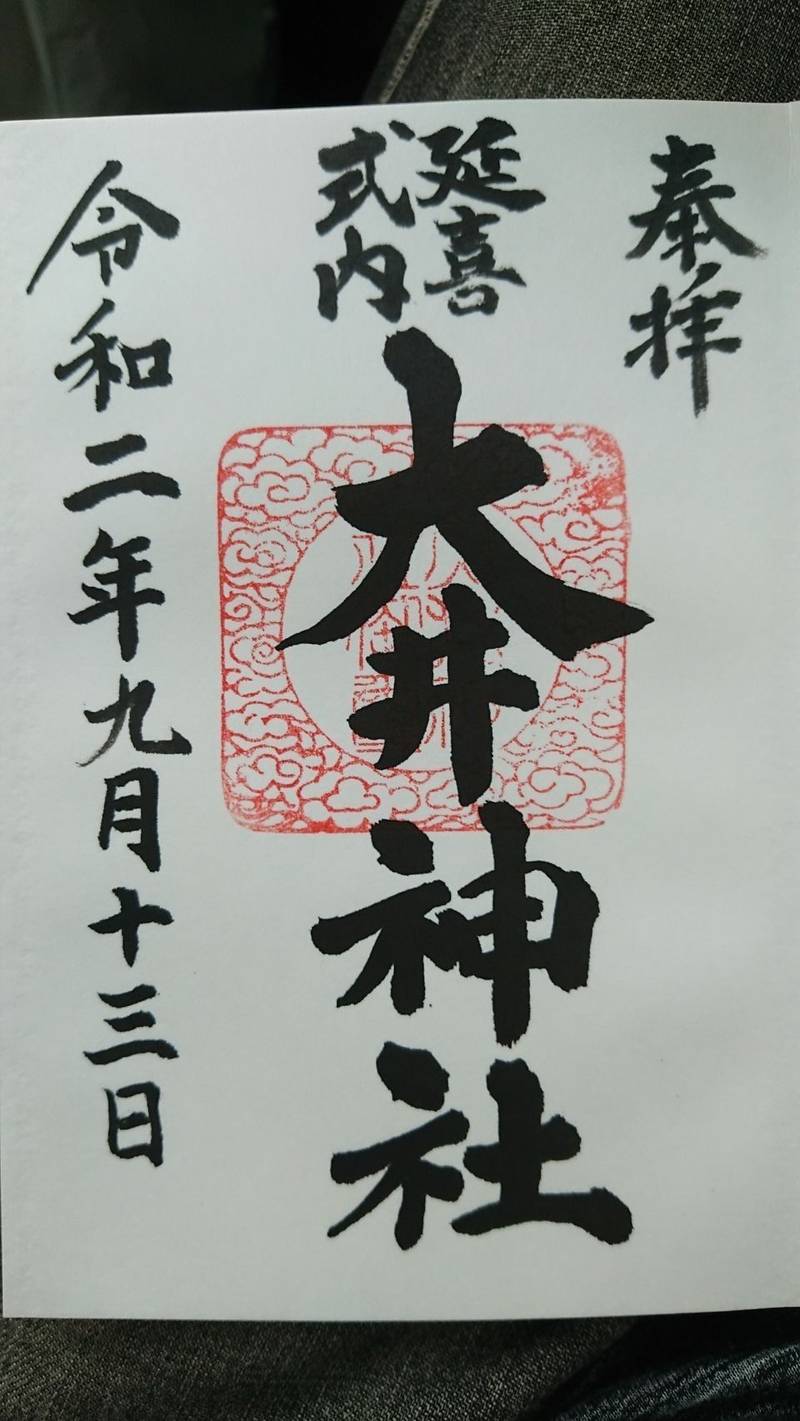 奉拝
延喜
式内
大井神社
令和二年九月十三日